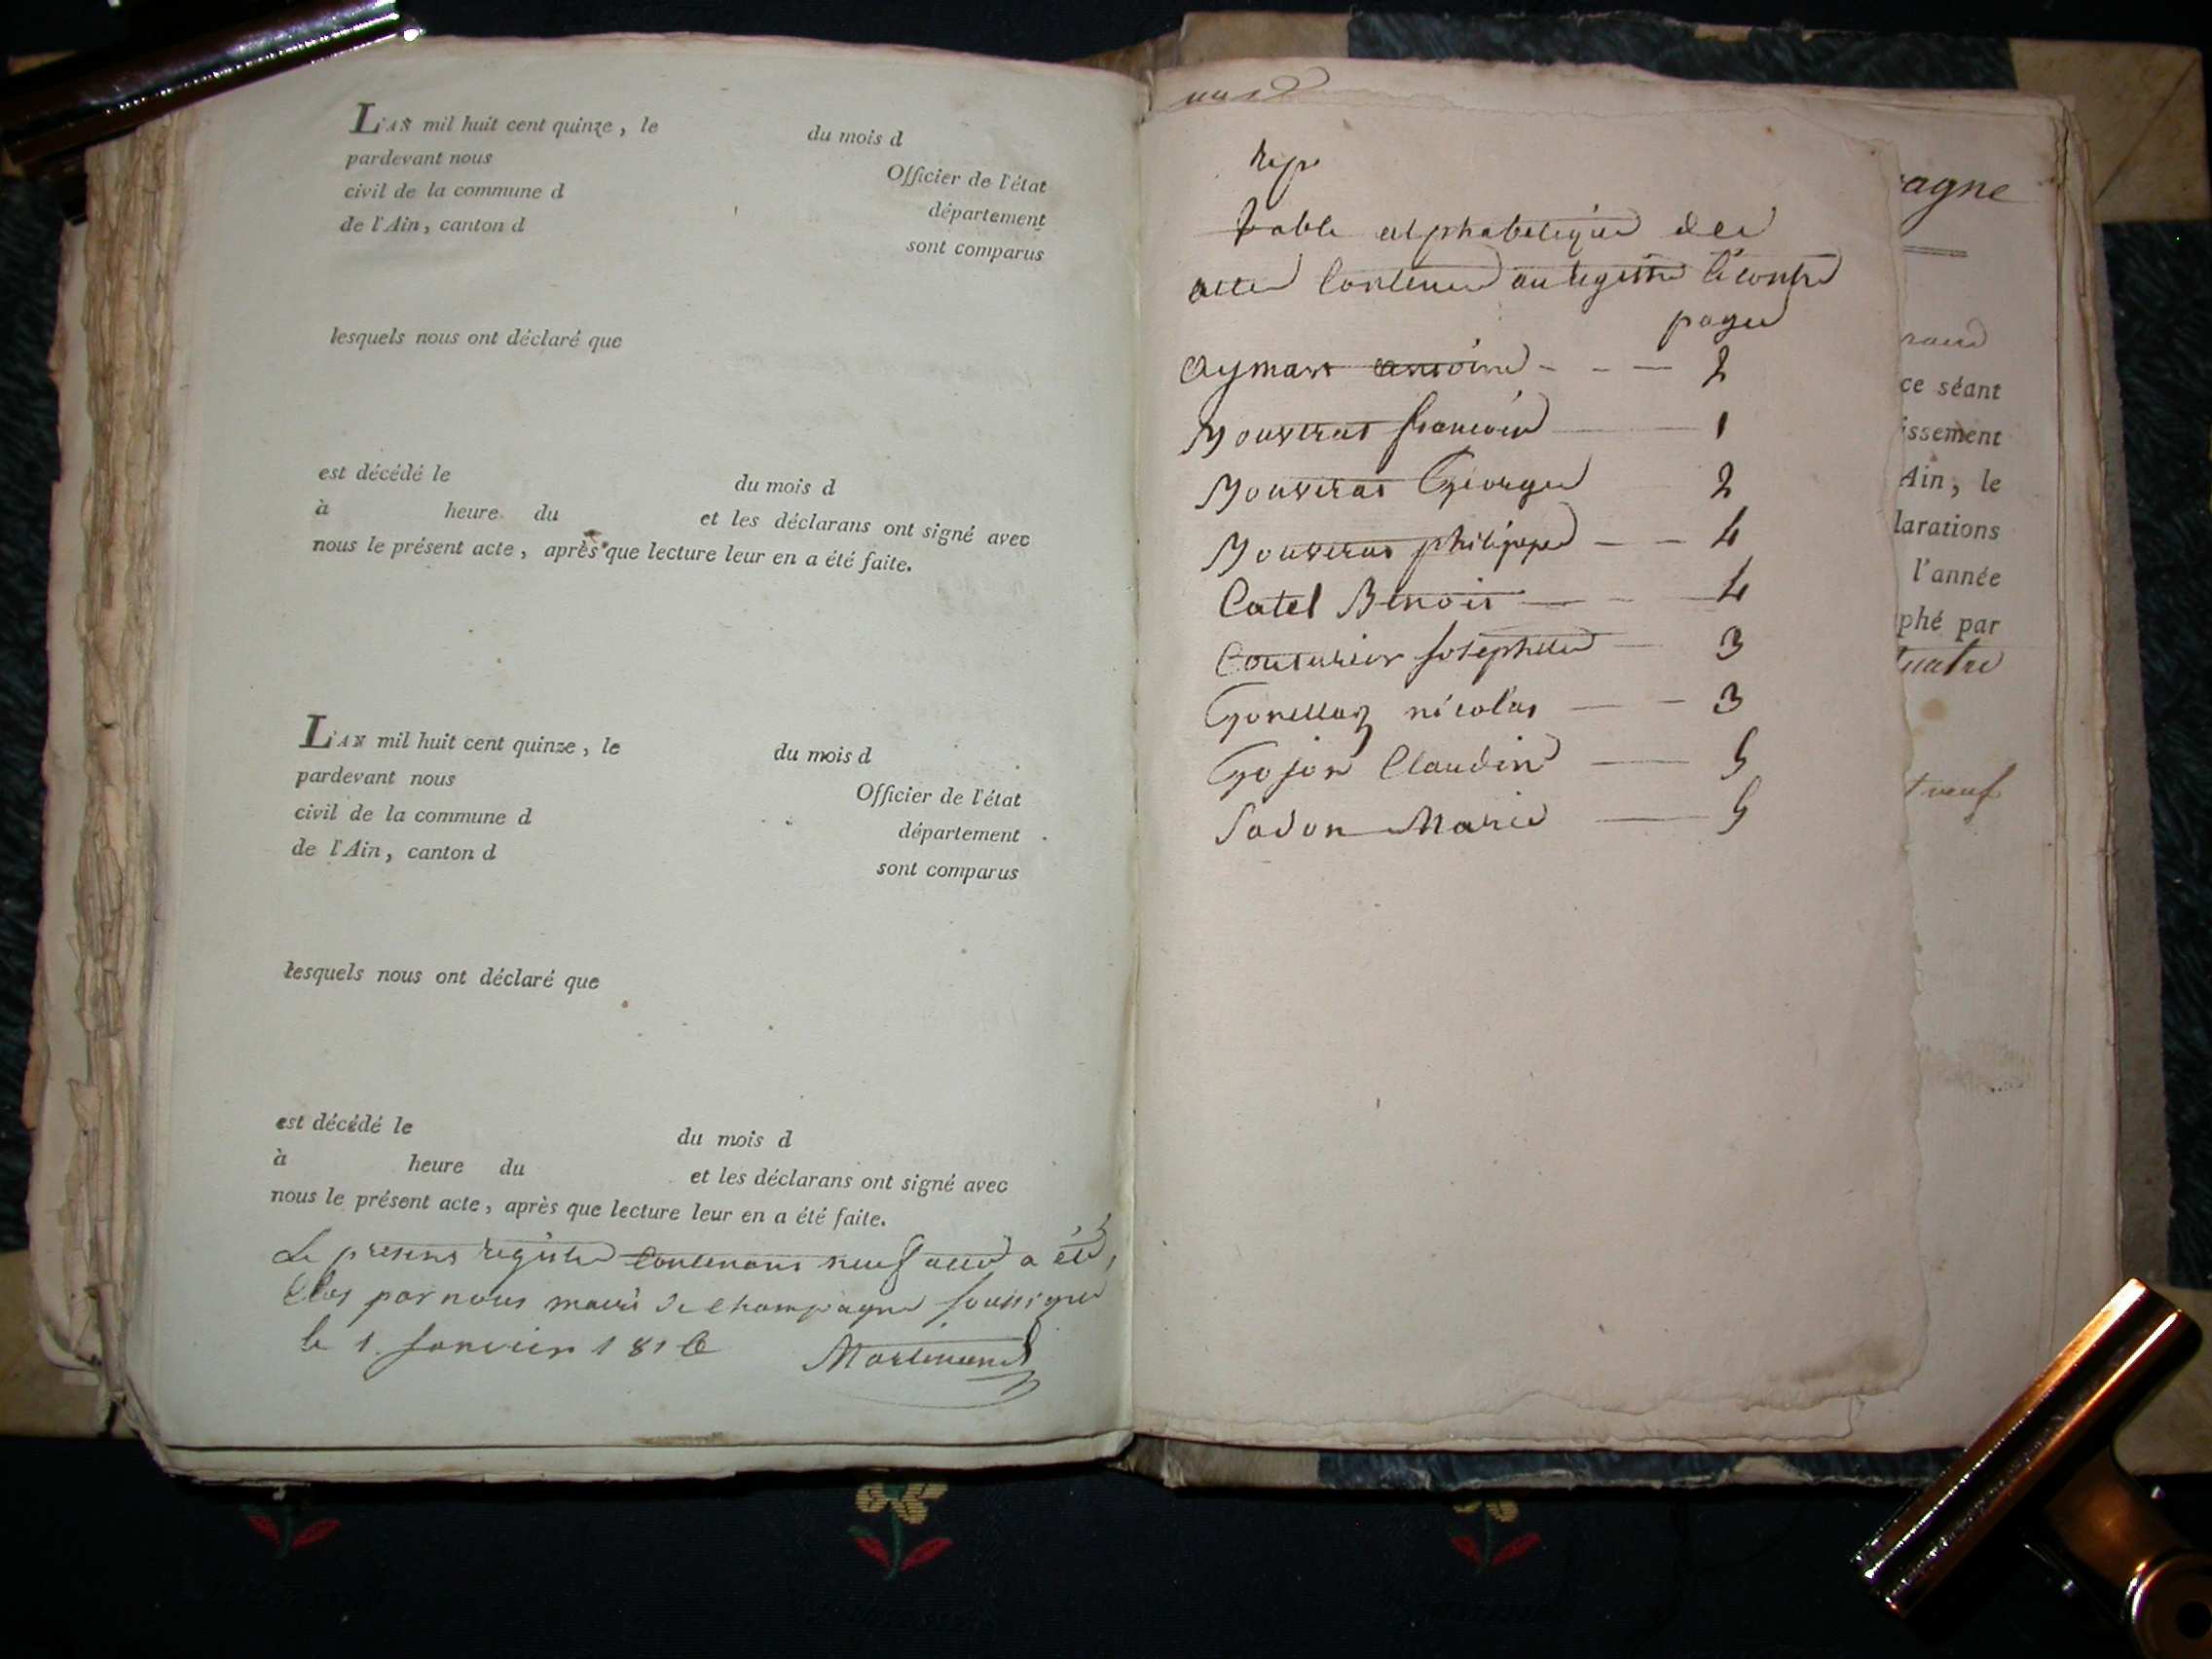 L'AN mil huit cent quinze, le du mois d
pardevant nous Officier de l'état
civil de la commune d département
de l'Ain, canton d sont comparus
lesquels nous ont déclaré que
est décédé le du mois d
à heure du et les déclarans ont signé avec
nous le présent acte, après que lecture leur en a été faite.
L'AN mil huit cent quinze, le du mois d
pardevant nous Officier de l'état
civil de la commune d département
de l'Ain, canton d sont comparus
lesquels nous ont déclaré que
est décédé le du mois d
à heure du et les déclarans ont signé avec
nous le présent acte, après que lecture leur en a été faite.
Le present registre contenant neuf actes a été
Clos par nous maire de champagne soussigné
le 1. janvier 1816
table alphabetique des
actes Contenus au registre ci contre
pages
Aymard antoine - - - 2
francois 1
George 2
philippe - - 4
Catel Benoit - - - 4
Couturier josephte - 3
nicolas - - 3
Gojon Claudine - 5
Marie - 5
agne
ce séant
issement
Ain, le
larations
l'année
phé par
quatre